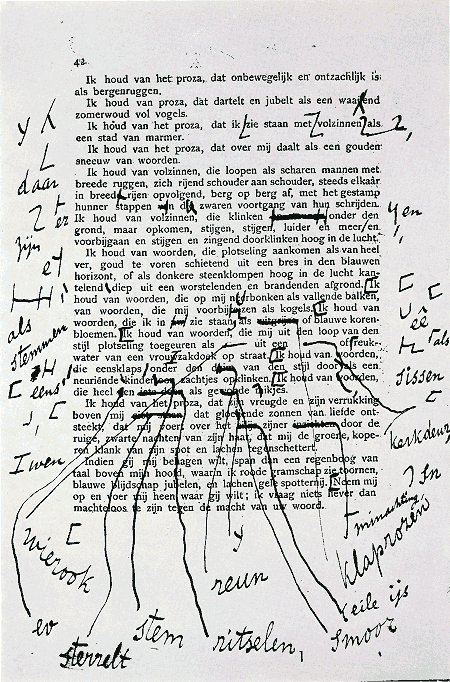 42
Ik houd van het proza, dat onbewegelijk en ontzachlijk is
als bergenruggen.
Ik houd van proza, dat dartelt en jubelt als een waaiend
zomerwoud vol vogels.
Ik houd van het proza, dat ik zie staan met volzinnen als
een stad van marmer.
Ik houd van het proza, dat over mij daalt als een gouden
sneeuw van woorden.
Ik houd van volzinnen, die loopen als scharen mannen met
breede ruggen, zich rijend schouder aan schouder, steeds elkaâr
in breede rijen opvolgend, berg op berg af, met het gestamp
hunner stappen en de waren voortgang van hun schrijden.
Ik houd van volzinnen, die klinken onder den
grond, maar opkomen, stijgen, stijgen, luider en meer en
voorbijgaan en stijgen en zingend doorklinken hoog in de lucht.
Ik houd van woorden, die plotseling aankomen als van heel
ver, goud te voren schietend uit een bres in den blauwen
horizont, of als donkere steenklompen hoog in de lucht kan-
telend diep uit een worstelenden en brandenden afgrond. Ik
houd van woorden, die op mij neêrbonken als vallende balken,
van woorden, die mij voorbij als kogels. Ik houd van
woorden, die ik in zie staan als of blauwe koren-
bloemen. Ik houd van woorden, die mij uit den loop van den
stijl plotseling toegeuren als uit een of reuk-
water van een vrouwzakdoek op straat. Ik houd van woorden,
die eensklaps onder den van den stijl door als een
neuriënde kinder zachtjes opklinken. Ik houd van woorden,
die heel even als snikjes.
Ik houd van het proza, dat zijn vreugde en zijn verrukking
boven mij dat gloeiende zonnen van liefde ont-
steekt, dat mij voert over het zijner door de
ruige, zwarte nachten van zijn haat, dat mij de groene, kope-
ren klank van zijn spot en lachen tegenschettert.
Indien gij mij behagen wilt, span dan een regenboog van
taal boven mijn hoofd, waarin ik roode gramschap zie toornen,
blauwe blijdschap jubelen, en lachen gele spotternij. Neem mij
op en voer mij heen waar gij wilt; ik vraag niets liever dan
machteloos te zijn tegen de macht van uw woord.
daar
zijn
als
stemmen
eens
wierook
ev
sterrelt
stem
reun
ritselen,
smoor
eile ijs
klaprozen
minachting
kerkdeur,
sissen
als
en